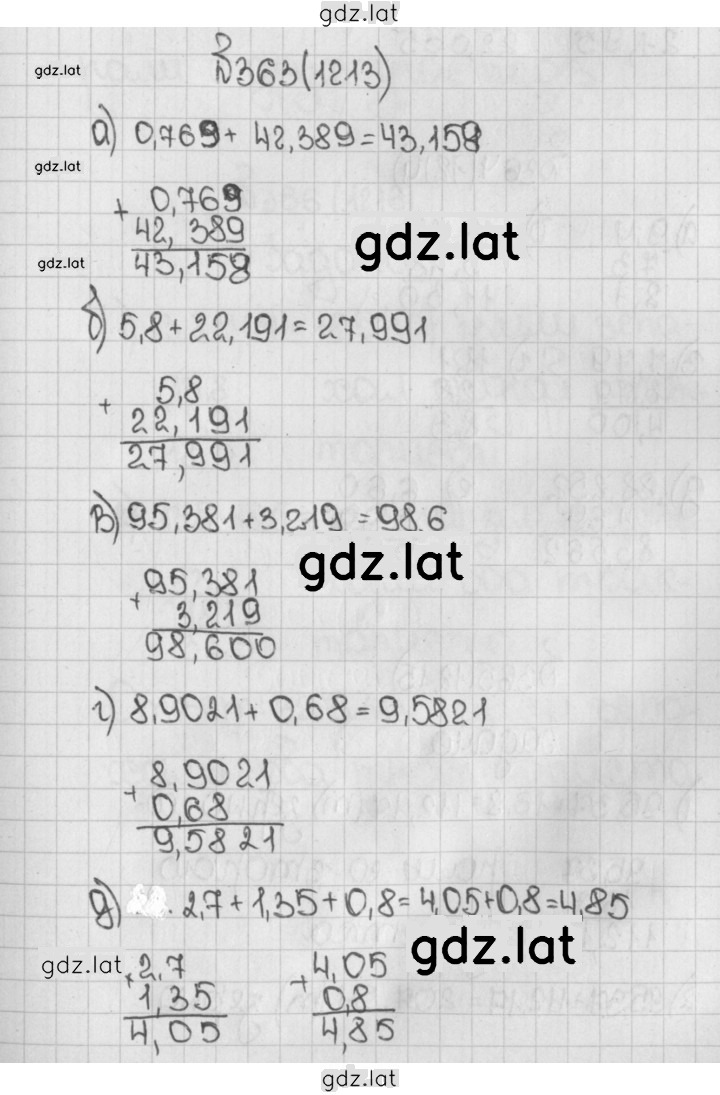 gdz.lat
gdz.lat
№363(1213)
а) 0,769 + 42,389 = 43,158
gdz.lat
+ 0,769
42,389
gdz.lat
gdz.lat
43,158
б) 5,8 + 22,191 = 27,991
+ 5,8
22,191
27,991
в) 95,381 + 3,219 = 98.6
gdz.lat
+ 95,381
3,219
98,600
г) 8,9021 + 0,68 = 9,5821
+ 8,9021
0,68
9,5821
д) 2,7 + 1,35 + 0,8 = 4,05 + 0,8 = 4,85
gdz.lat
gdz.lat
+ 2,7 + 4,05
1,35 0,8
4,05 4,85
gdz.lat